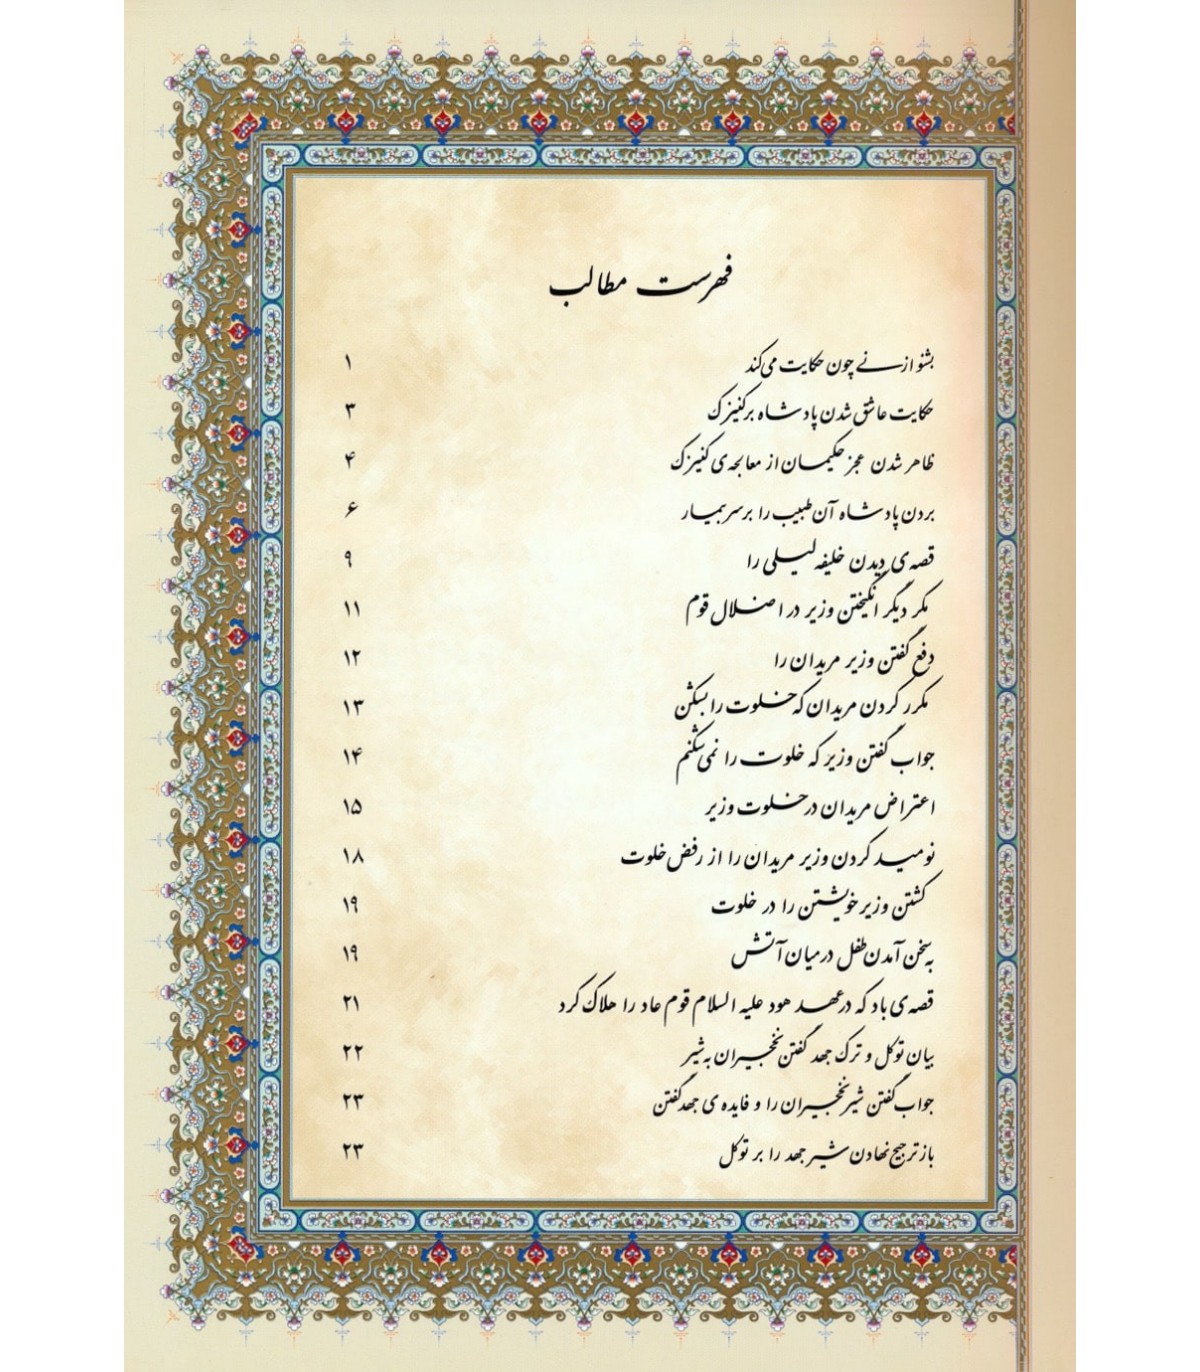 فهرست مطالب
بشنو از نے چون حکایت می‌کند ۱
حکایت عاشق شدن پادشاه بر کنیزک ۳
ظاهر شدن عجز حکیمان از معالجه‌ی کنیزک ۴
بردن پادشاه آن طبیب را بر سر بیمار ۶
قصه‌ی دیدن خلیفه لیلی را ۹
مکر دیگر انگیختن وزیر در اضلال قوم ۱۱
دفع گفتن وزیر مریدان را ۱۲
مکرر کردن مریدان که خلوت را بشکن ۱۳
جواب گفتن وزیر که خلوت را نمی‌شکنم ۱۴
اعتراض مریدان در خلوت وزیر ۱۵
نومید کردن وزیر مریدان را از رفض خلوت ۱۸
کشتن وزیر خویشتن را در خلوت ۱۹
به سخن آمدن طفل در میان آتش ۱۹
قصه‌ی باد که در عهد هود علیه السلام قوم عاد را هلاک کرد ۲۱
بیان توکل و ترک جهد گفتن نخجیران به شیر ۲۲
جواب گفتن شیر نخجیران را و فایده‌ی جهد گفتن ۲۳
باز ترجیح نهادن شیر جهد را بر توکل ۲۳